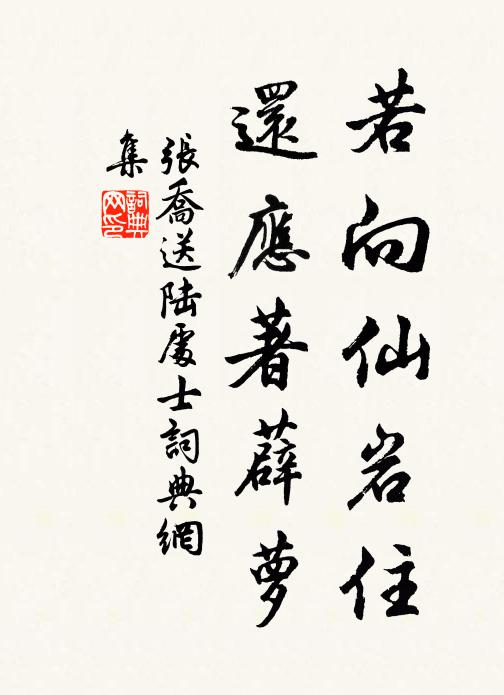 若向仙岩住
還應著薜萝
張喬送陸處士詞典網
集
詞典
网印